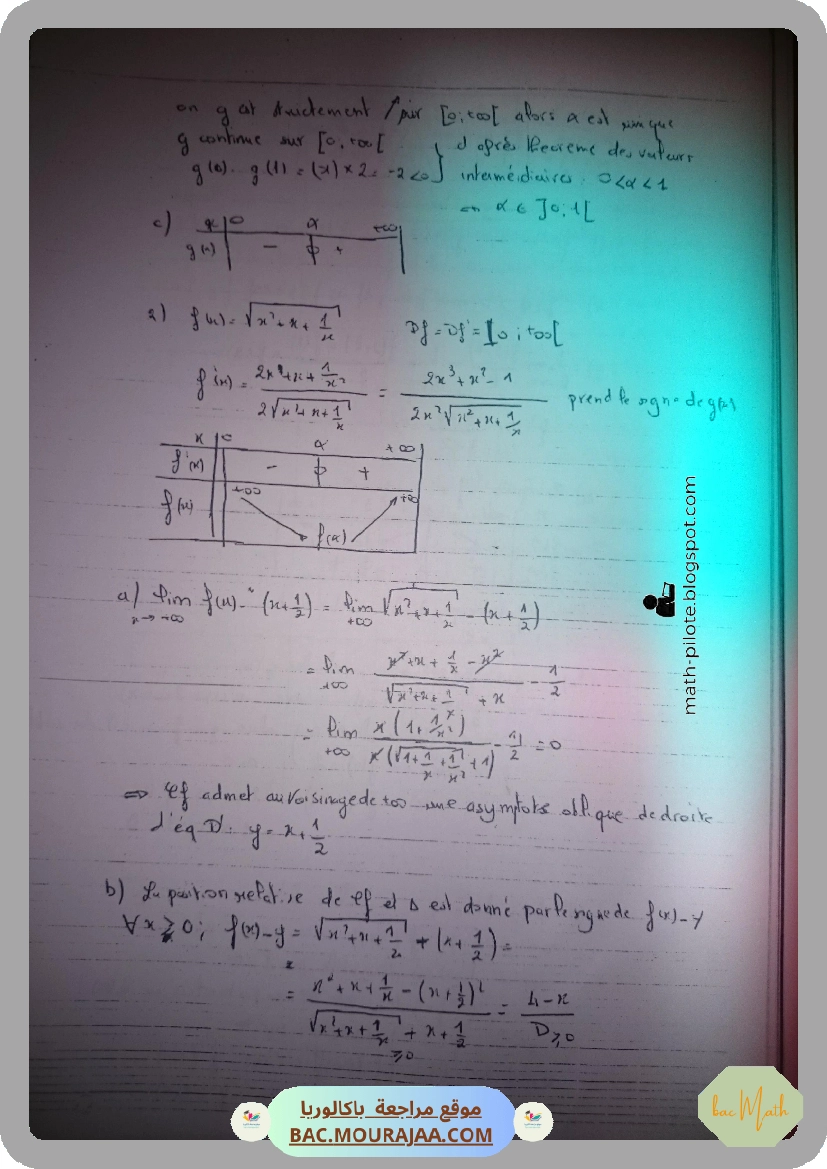 on g est strictement ↗ sur [0;+∞[ alors α est unique
g continue sur [0,+∞[ } d'après théorème des valeurs
g(0). g(1) = (-1) × 2 = -2 < 0 } intermédiaires : 0 < α < 1
α ∈ ]0;1[
c) x | 0 α +∞
g(x) | - 0 +
2) f(x) = √(x² + x + 1/x) Df = Df' = ]0; +∞[
f'(x) = (2x + 1 + 1/x²) / (2√(x² + x + 1/x)) = (2x³ + x² - 1) / (2x²√(x² + x + 1/x)) prend le signe de g(x)
x | 0 α +∞
f'(x) | - 0 +
f(x) | +∞ f(α) +∞
a) lim x→+∞ f(x) - (x + 1/2) = lim +∞ √(x² + x + 1/x) - (x + 1/2)
= lim +∞ (x² + x + 1/x - x²) / (√(x² + x + 1/x) + x) - 1/2
= lim +∞ x(1 + 1/x²) / x(√(1 + 1/x + 1/x²) + 1) - 1/2 = 0
⇒ Cf admet au voisinage de +∞ une asymptote oblique de droite
d'éq D : y = x + 1/2
b) La position relative de Cf et Δ est donné par le signe de f(x) - y
∀x ≥ 0 ; f(x) - y = √(x² + x + 1/x) - (x + 1/2) =
= (x² + x + 1/x - (x + 1/2)²) / (√(x² + x + 1/x) + x + 1/2) = (4 - x) / D ≥ 0
≥ 0
math-pilote.blogspot.com
موقع مراجعة باكالوريا
BAC.MOURAJAA.COM
bac Math